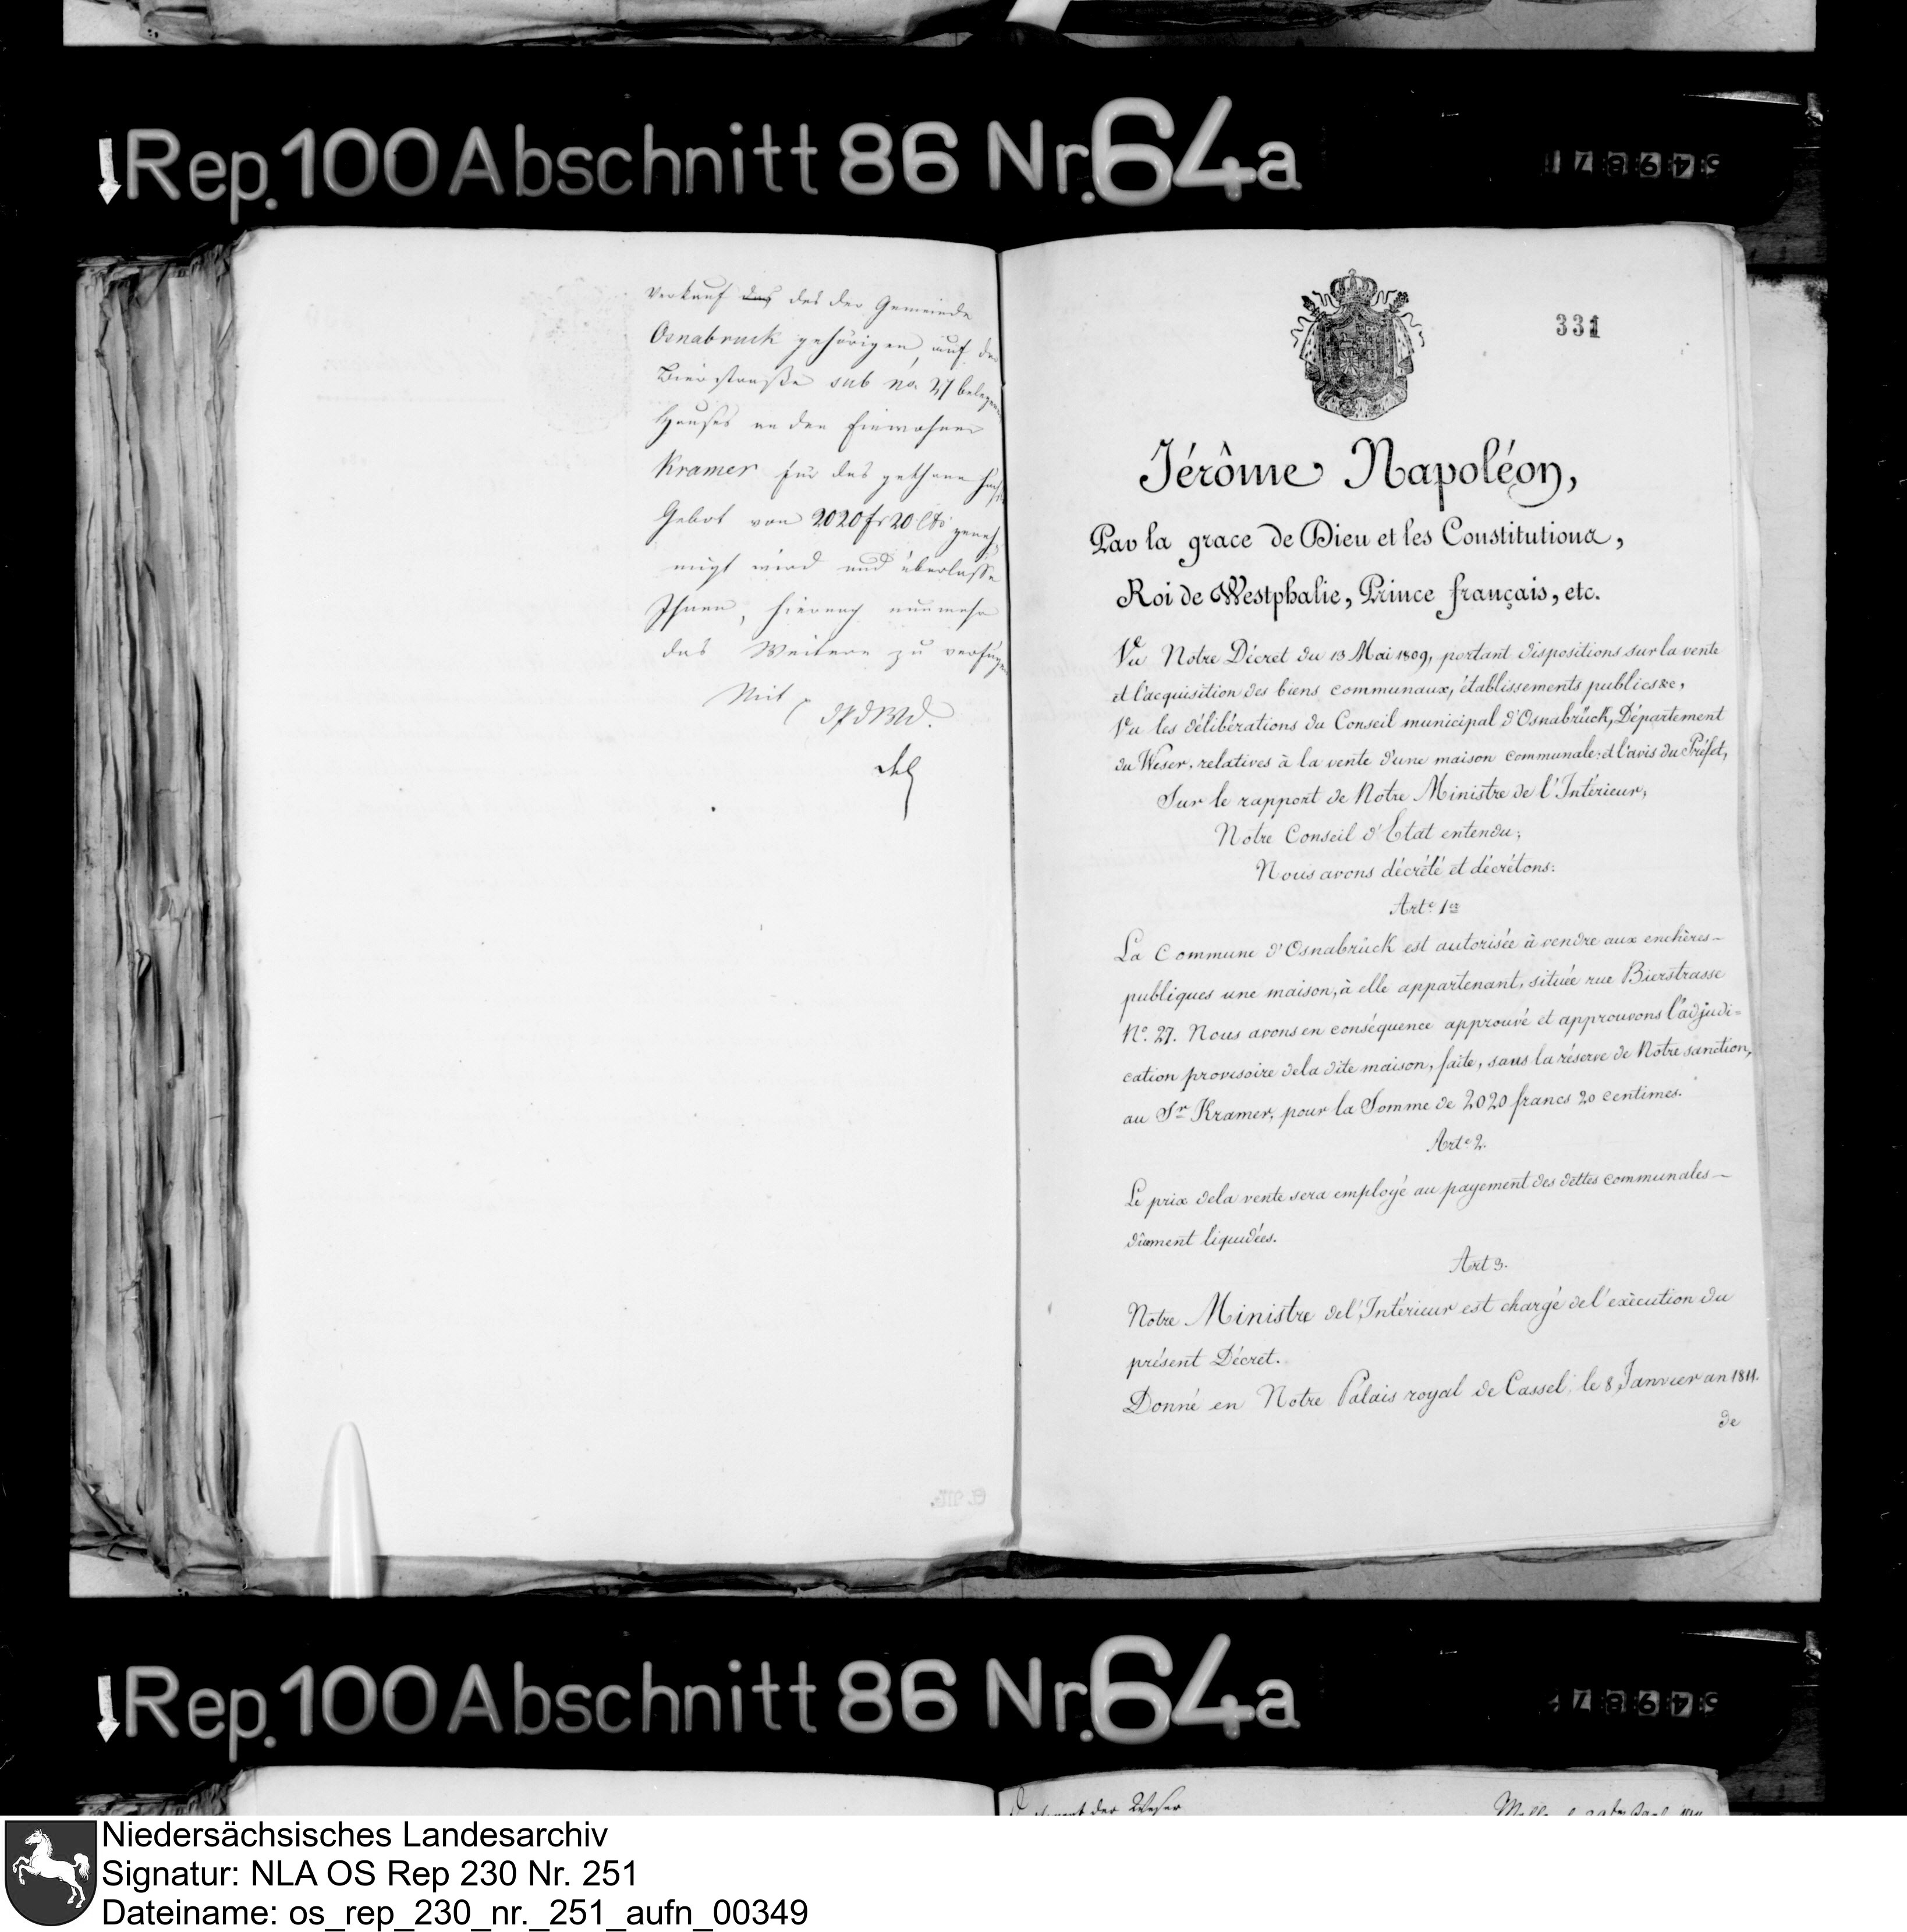 Rep. 100 Abschnitt 86 Nr. 64a
Verkauf das des der Gemeinde
Osnabruck gehörigen, auf der
Bierstraße sub no. 27 belegenen
Hauses an den Einwohner
Kramer für das gethane
Gebot von 2020 fr 20 Cts geneh
migt wird und überlasse
Ihnen, hiernach nunmehr
das Weitere zu verfügen
Mit
331
Jérôme Napoléon,
Par la grace de Dieu et les Constitutions,
Roi de Westphalie, Prince français, etc.
Vu Notre Décret du 13 Mai 1809, portant dispositions sur la vente
et l'acquisition des biens communaux, établissements publics &c,
Vu les délibérations du Conseil municipal d'Osnabrück, Département
du Weser, relatives à la vente d'une maison communale: et l'avis du Préfet,
Sur le rapport de Notre Ministre de l'Intérieur,
Notre Conseil d'Etat entendu;
Nous avons décrété et décrétons:
Arte 1er
La Commune d'Osnabrück est autorisée à vendre aux enchères
publiques une maison, à elle appartenant, située rue Bierstrasse
No. 27. Nous avons en conséquence approuvé et approuvons l'adjudi=
cation provisoire dela dite maison, faite, sans la réserve de Notre sanction,
au Sr Kramer, pour la Somme de 2020 francs 20 centimes.
Arte 2.
Le prix dela vente sera employé au payement des dettes communales
dûment liquidées.
Art 3.
Notre Ministre del'Intérieur est chargé del'exècution du
présent Décret.
Donné en Notre Palais royal de Cassel, le 8 Janvier an 1811.
de
Rep. 100 Abschnitt 86 Nr. 64a
der Weser
Niedersächsisches Landesarchiv
Signatur: NLA OS Rep 230 Nr. 251
Dateiname: os_rep_230_nr._251_aufn_00349